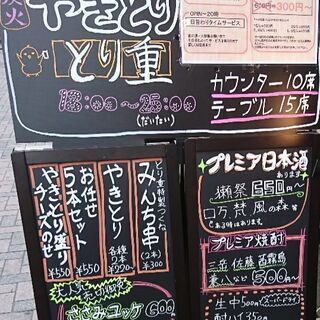 炭火
やきとり
とり重
18:00～25:00
(だいたい)
OPEN～20時
日替わりタイムサービス
300円～
カウンター10席
テーブル15席
とり重特製つくね
みんち串 2本 ¥300
やきとり 各種2本 ¥220～
お任せ5本セット ¥550
やきとり盛り チーズのせ ¥550
大人気
ささみユッケ 600
プレミア日本酒
あります
獺祭 650円～
口万 梵 風の森 等
プレミアム焼酎
三岳 佐藤 茜霧島
兼八 など 500円～
生中 500円 スーパードライ
酎ハイ 350円